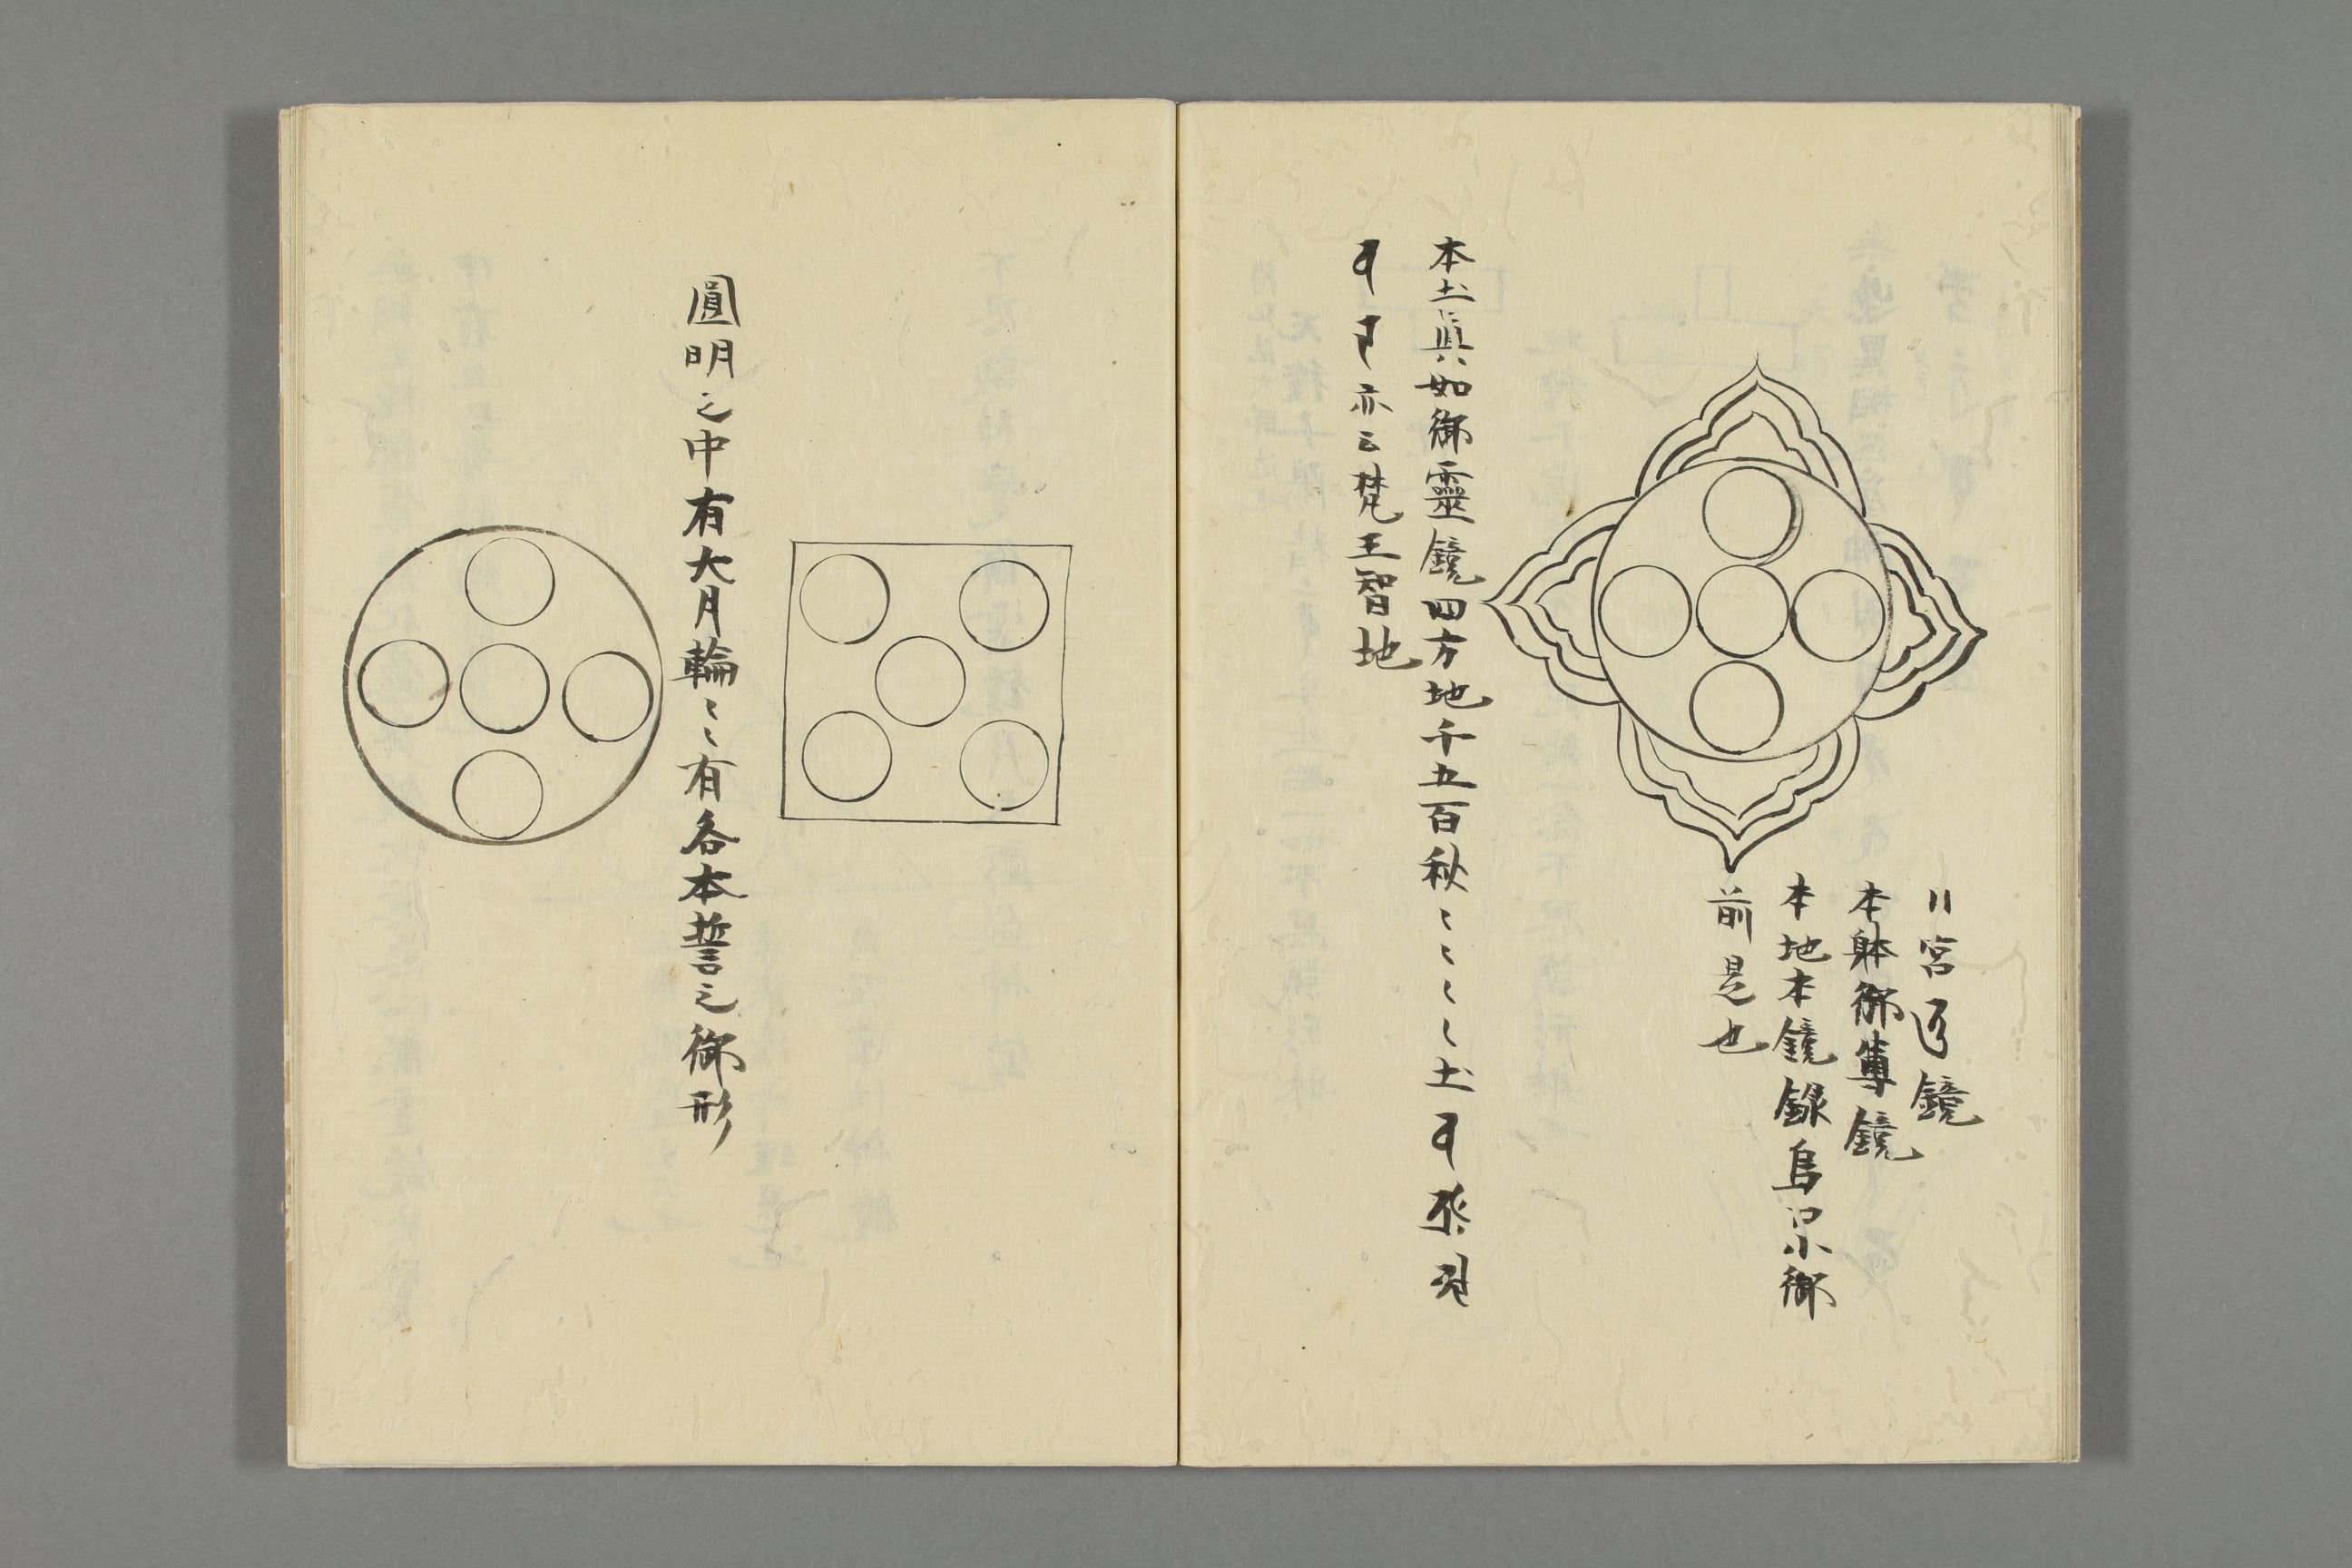 宮 鏡
本躰御尊鏡
本地本鏡録 御
前是也
本土真如御靈鏡四方地千五百秋〻〻〻〻土
亦云梵王智地
圓明之中有大月輪〻〻有各本誓之御形